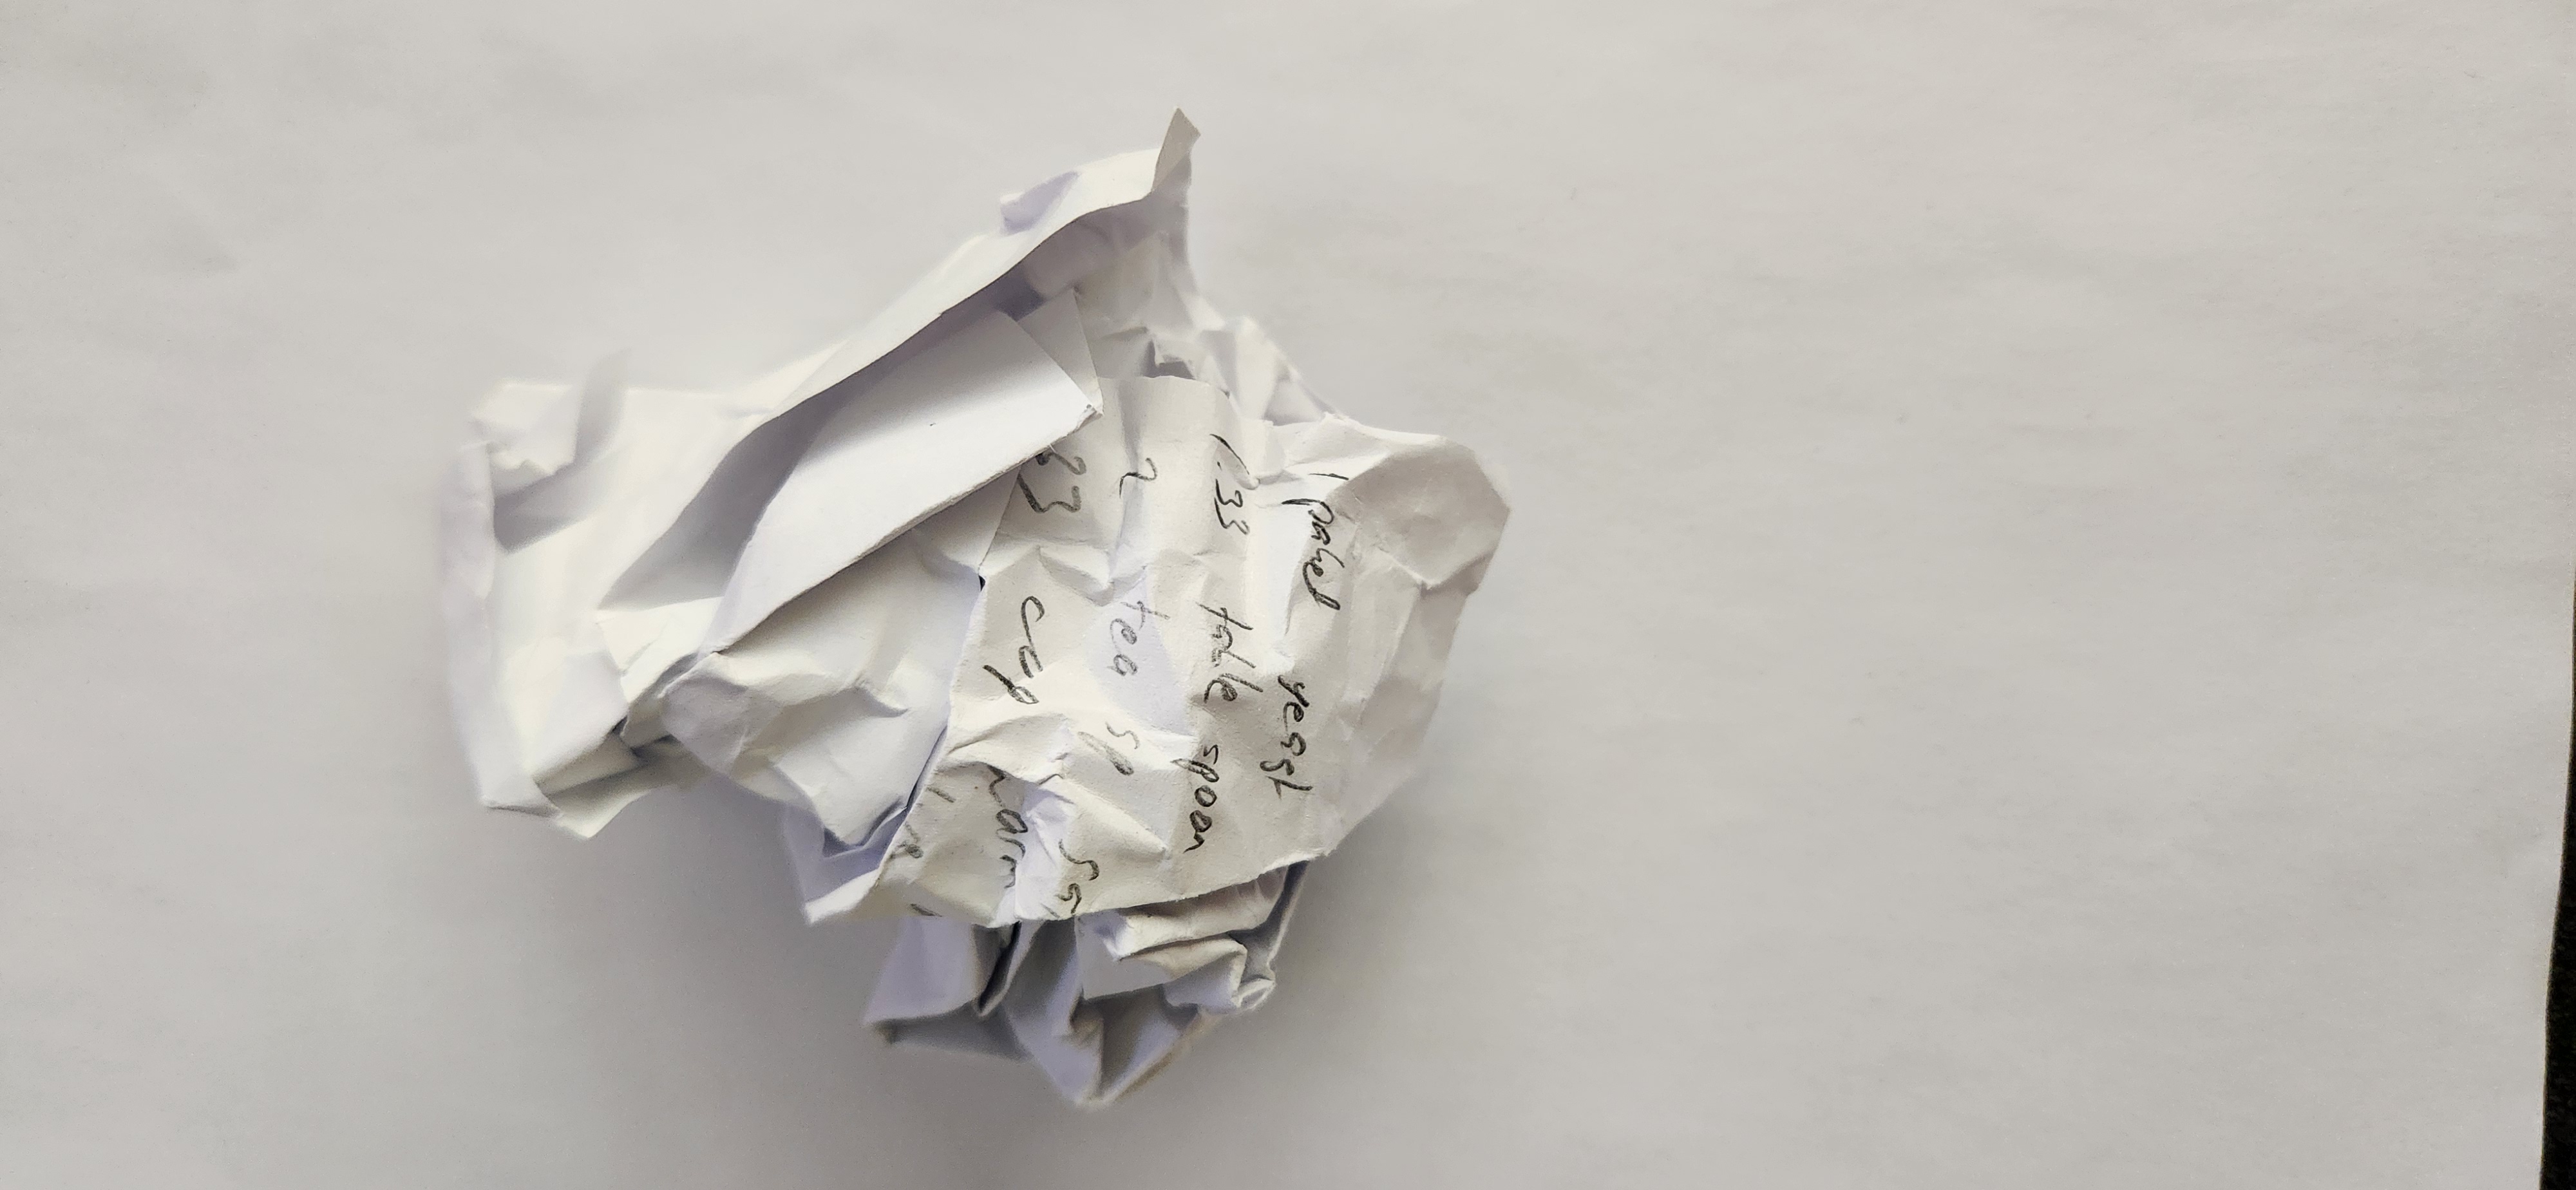 1 packed yeast
1.33 table spoon
2 tea sp sa
.33 cup warm